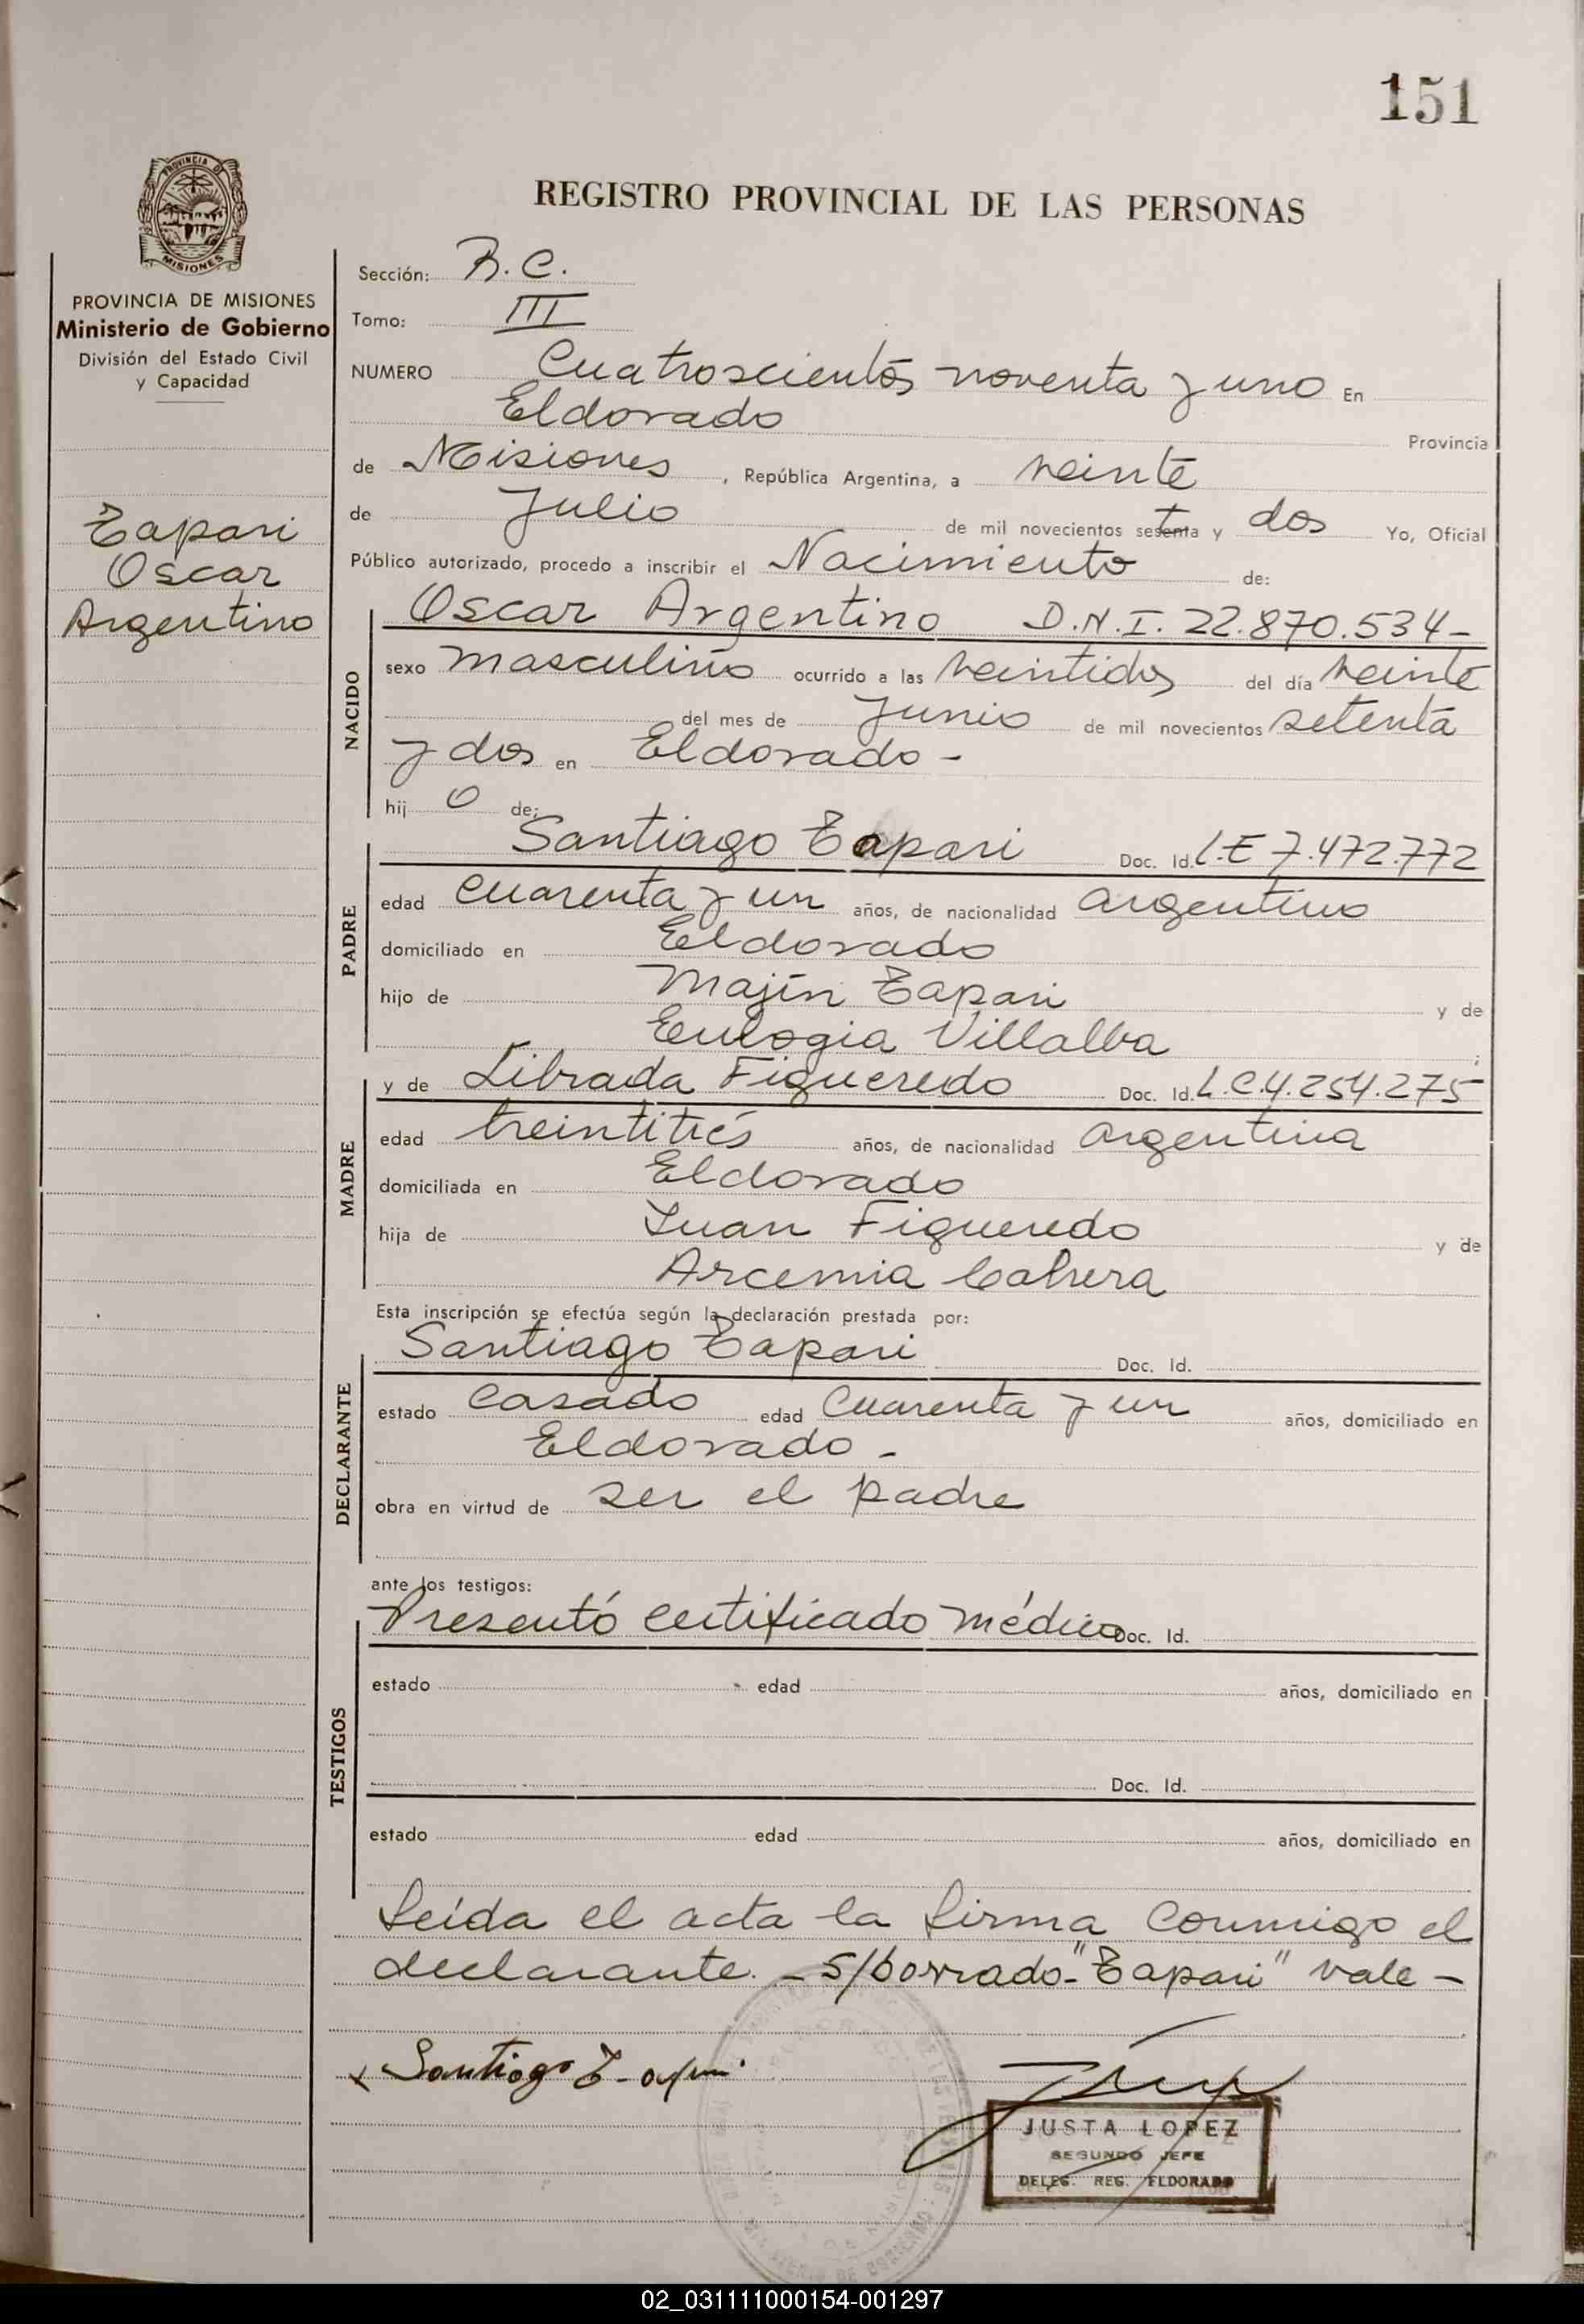 151
PROVINCIA DE
MISIONES
PROVINCIA DE MISIONES
Ministerio de Gobierno
División del Estado Civil
y Capacidad
Tapari
Oscar
Argentino
REGISTRO PROVINCIAL DE LAS PERSONAS
Sección: R.C.
Tomo: III
NUMERO Cuatroscientos noventa y uno En
Eldorado Provincia
de Misiones, República Argentina, a veinte
de Julio de mil novecientos setenta y dos Yo, Oficial
Público autorizado, procedo a inscribir el Nacimiento de:
NACIDO
Oscar Argentino D.N.I. 22.870.534-
sexo masculino ocurrido a las veintidos del día veinte
del mes de Junio de mil novecientos setenta
y dos en Eldorado -
hij o de:
PADRE
Santiago Tapari Doc. Id. L.E 7.472.772
edad cuarenta y un años, de nacionalidad argentino
domiciliado en Eldorado
hijo de Majín Tapari y de
Eulogia Villalba ;
MADRE
y de Librada Figueredo Doc. Id. L.C.4.254.275
edad treintitrés años, de nacionalidad argentina
domiciliada en Eldorado
hija de Juan Figueredo y de
Arcemia Cabrera
Esta inscripción se efectúa según la declaración prestada por:
DECLARANTE
Santiago Tapari Doc. Id.
estado casado edad cuarenta y un años, domiciliado en
Eldorado -
obra en virtud de ser el padre
ante los testigos:
TESTIGOS
Presentó certificado médico Doc. Id.
estado edad años, domiciliado en
Doc. Id.
estado edad años, domiciliado en
Leída el acta la firma conmigo el
declarante. - S/borrado - "Tapari" vale -
x Santiago Tapari
JUSTA LOPEZ
SEGUNDO JEFE
DELEG. REG. ELDORADO
02_031111000154-001297